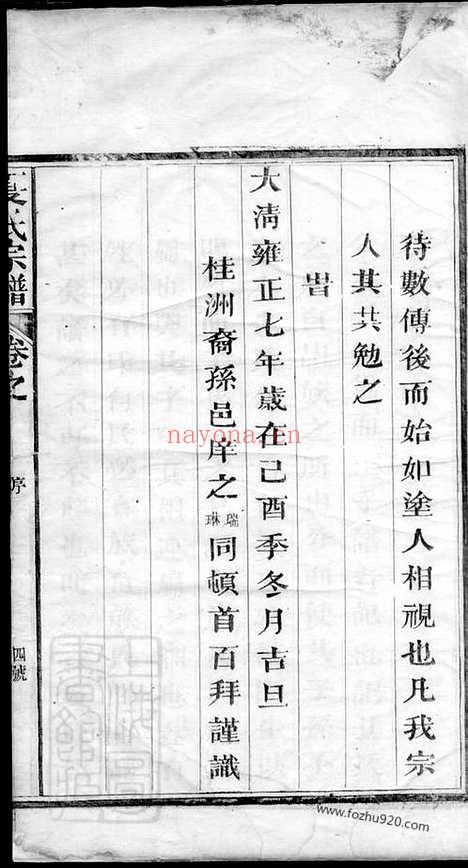 待數傳後而始如塗人相視也凡我宗
人其共勉之
旹
大清雍正七年歲在己酉季冬月吉旦
桂洲裔孫邑庠之瑞琳同頓首百拜謹識
氏宗譜 卷之 序 四號
nayona.en
www.fozhu920.com